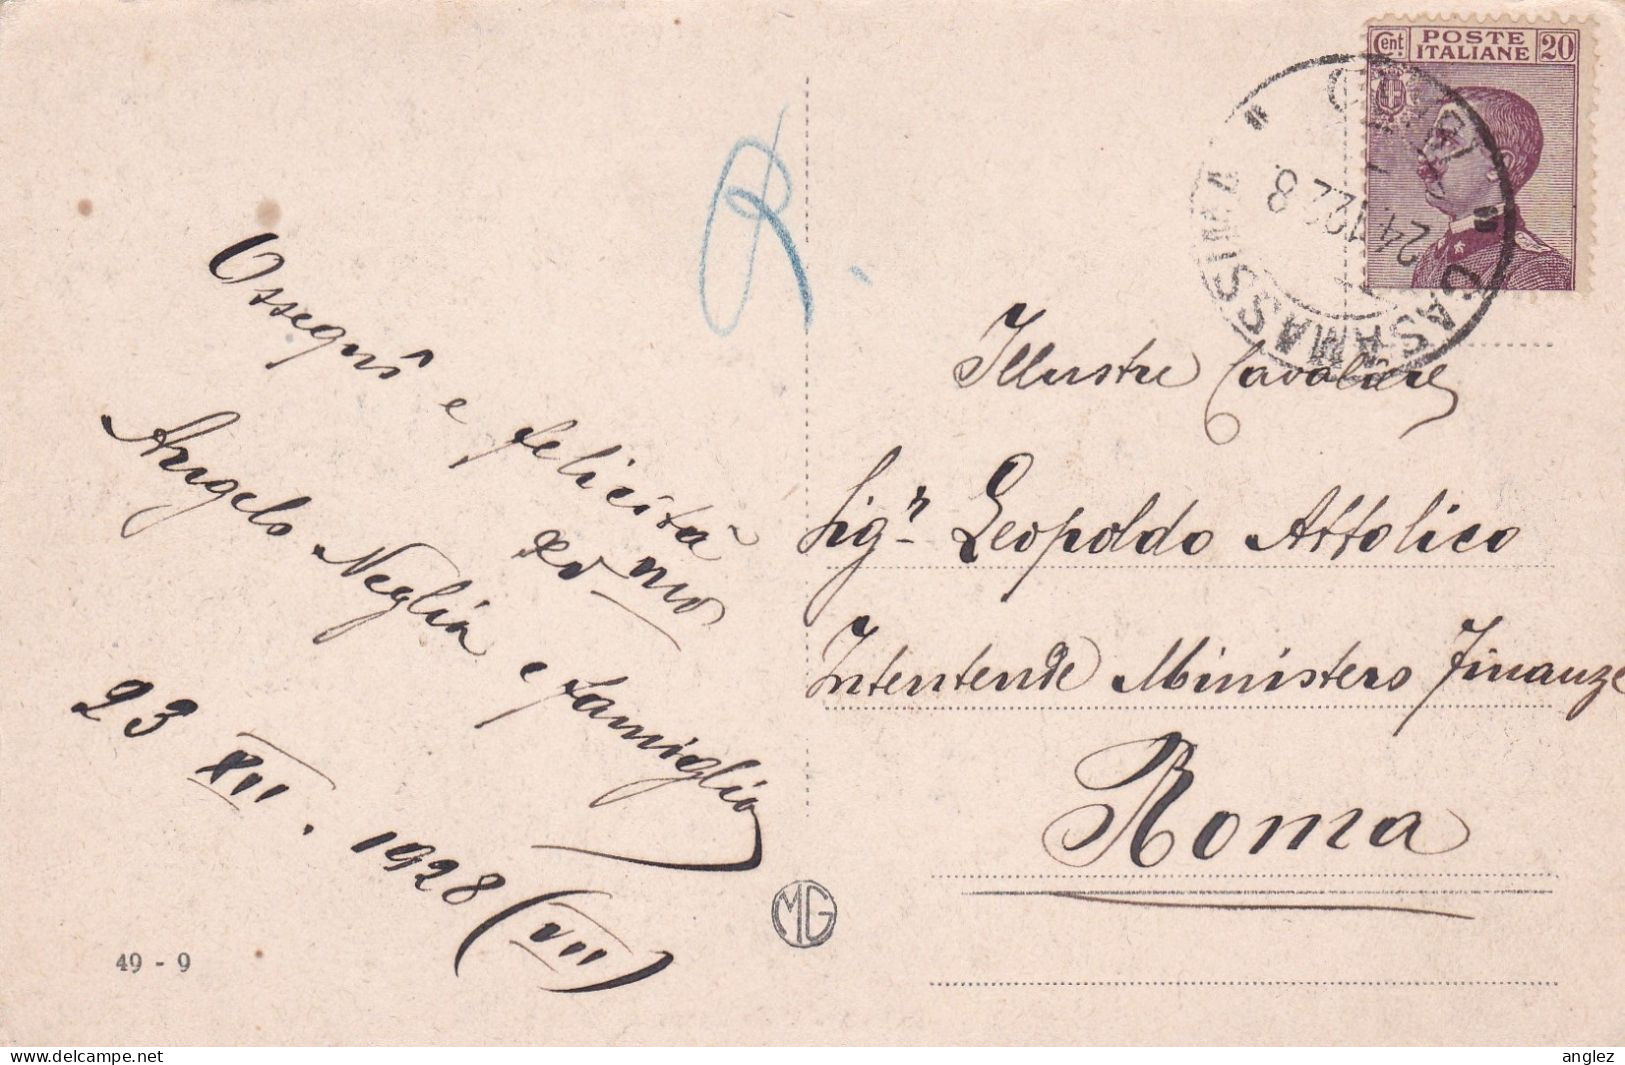 Ossequi e felicità
Angelo Neglia e famiglia
23 XII. 1928 (VII)
49 - 9
MG
Cent. POSTE ITALIANE 20
CASAMASSIMA
24.12.28.8
Illustre Cavaliere
Sigr Leopoldo Attolico
Intentende Ministero Finanze
Roma
anglez